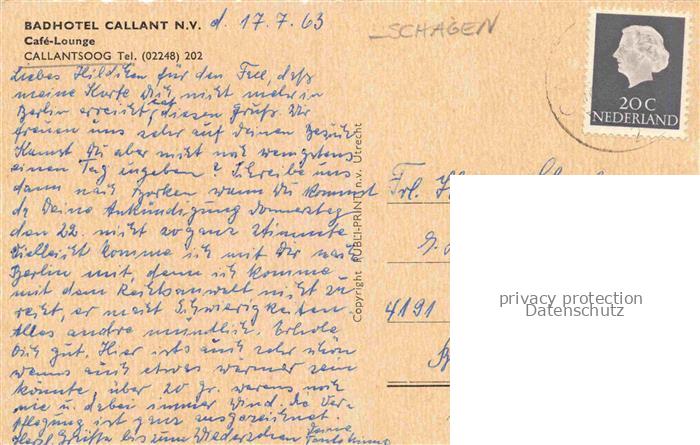 BADHOTEL CALLANT N.V. d. 17.7.63
Café-Lounge
CALLANTSOOG Tel. (02248) 202
SCHAGEN
20 C
NEDERLAND
Liebes Hildchen für den Fall, daß
meine Karte Dich nicht mehr in
Berlin erreicht, diesen Gruß. Wir
freuen uns sehr auf deinen Besuch
Kannst Du aber nicht noch wenigstens
einen Tag zugeben? Schreibe uns
dann nach Borken wann Du kommst
da Deine Ankündigung Donnerstag
den 22. nicht so ganz stimmte
Vielleicht komme ich mit Dir nach
Berlin mit, denn ich komme
mit dem Rechtsanwalt nicht zu
recht, er macht Schwierigkeiten
Alles andre mündlich. Erhole
Dich gut. Hier ists auch sehr schön
wenns auch etwas wärmer sein
könnte, über 20 Gr. warens noch
nie u. dabei immer Wind. Die Ver-
pflegung ist ganz ausgezeichnet.
Herzl. Grüße bis zum Wiedersehen Deine
Copyright PUBLI-PRINT n.v. Utrecht
Frl.
4191
privacy protection
Datenschutz